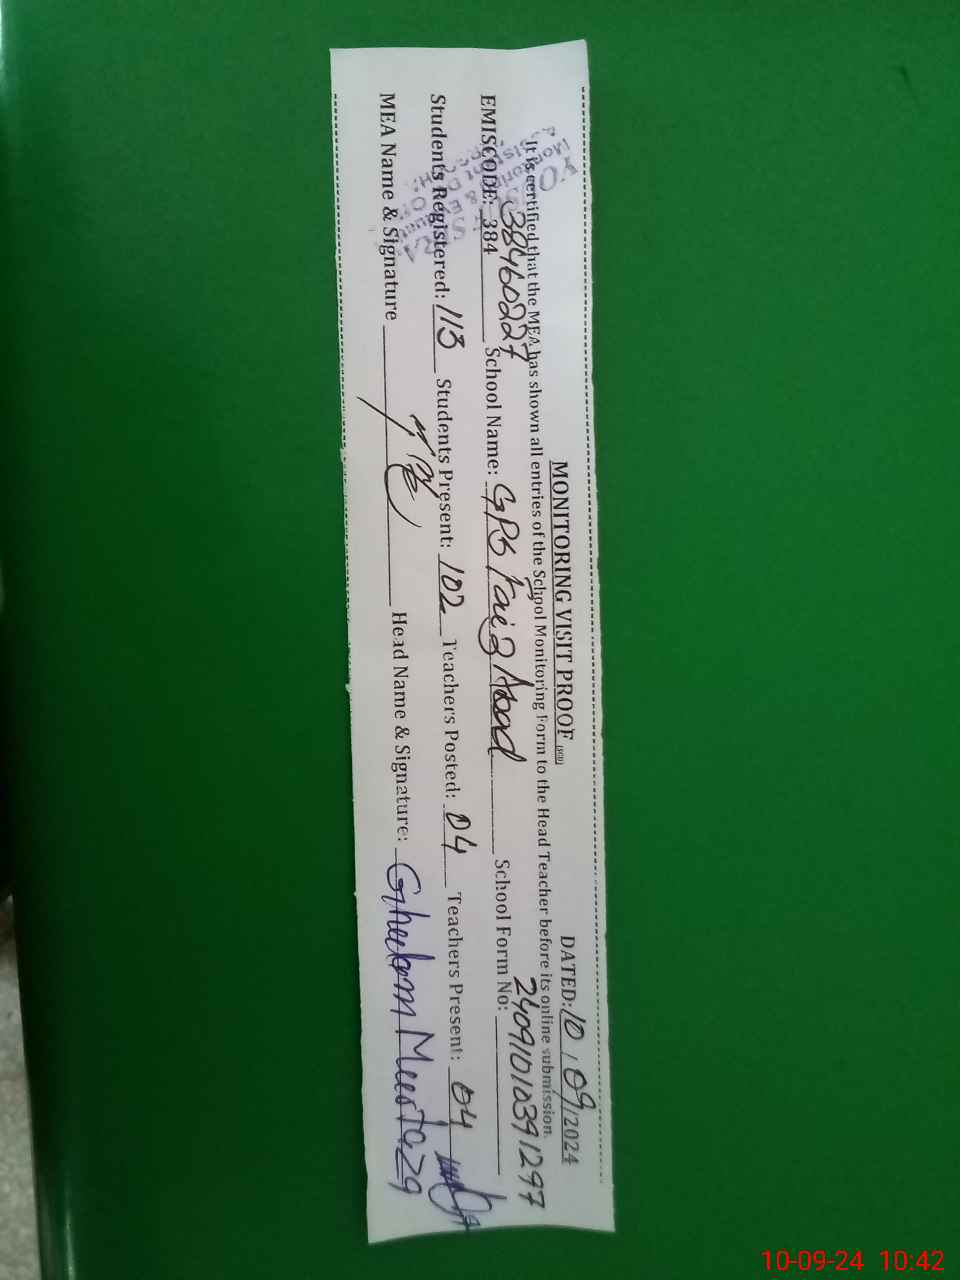 MONITORING VISIT PROOF
DATED: 10/09/2024
It is certified that the MEA has shown all entries of the School Monitoring Form to the Head Teacher before its online submission.
EMISCODE: 384 38460227 School Name: GPS Faiz Abad School Form No: 24091010391297
Students Registered: 113 Students Present: 102 Teachers Posted: 04 Teachers Present: 04
MEA Name & Signature Head Name & Signature: Ghulam Murtaza
10-09-24 10:42